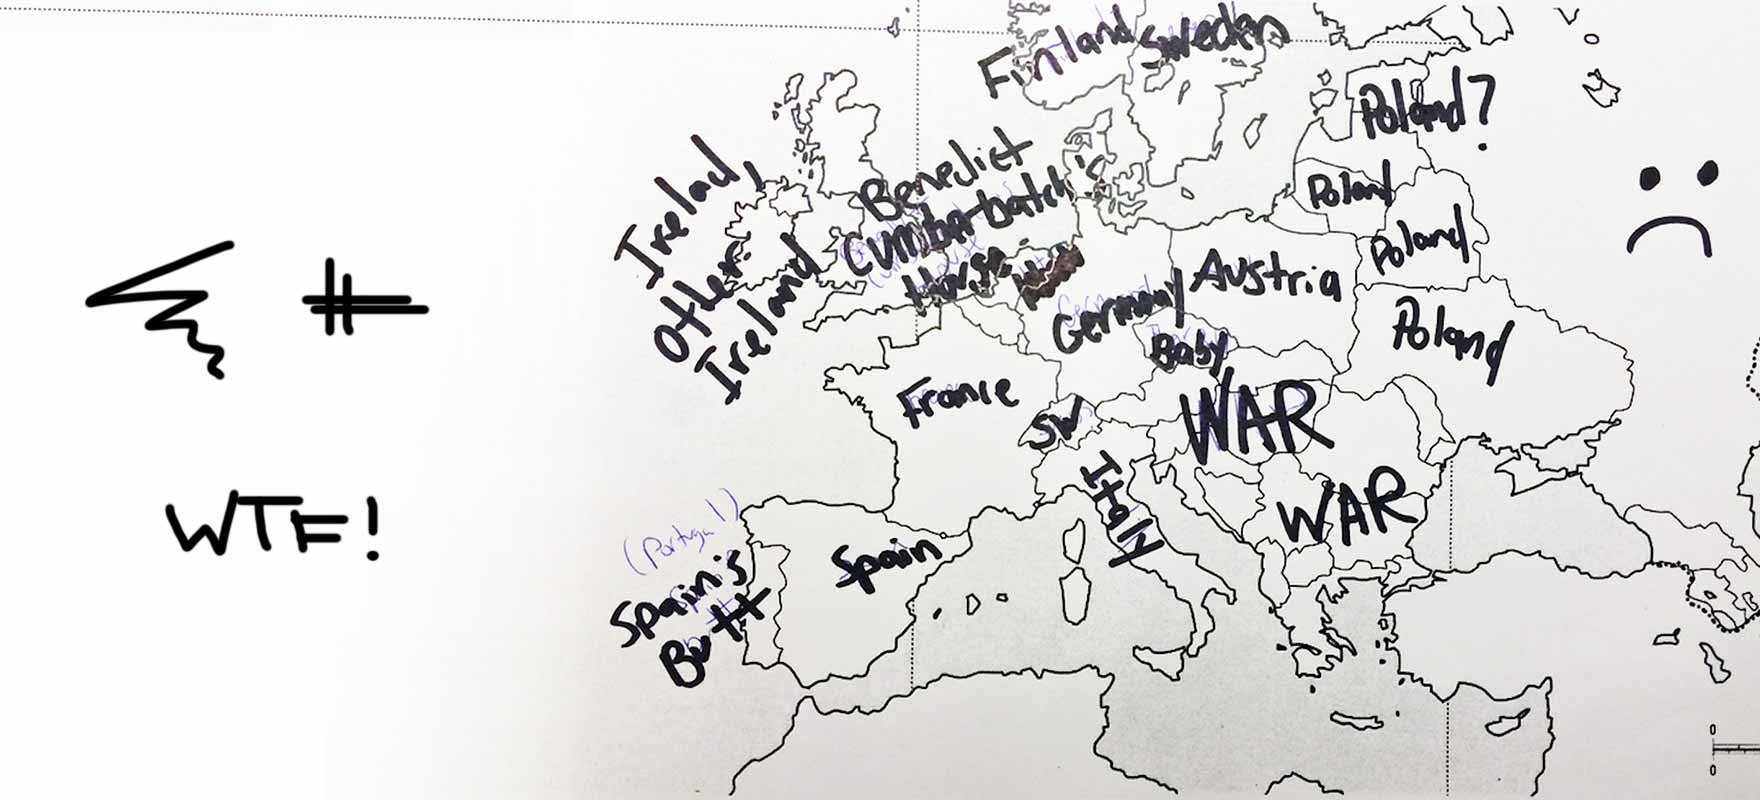 Finland
Sweden
Poland?
Irelad,
Other
Ireland
Benedict
Cumba-batch's
House
Poland
Poland
Germany
Austria
Poland
Baby
France
SW
WAR
Italy
WAR
WTF!
(Portugal)
Spain's
Butt
Spain
0
0